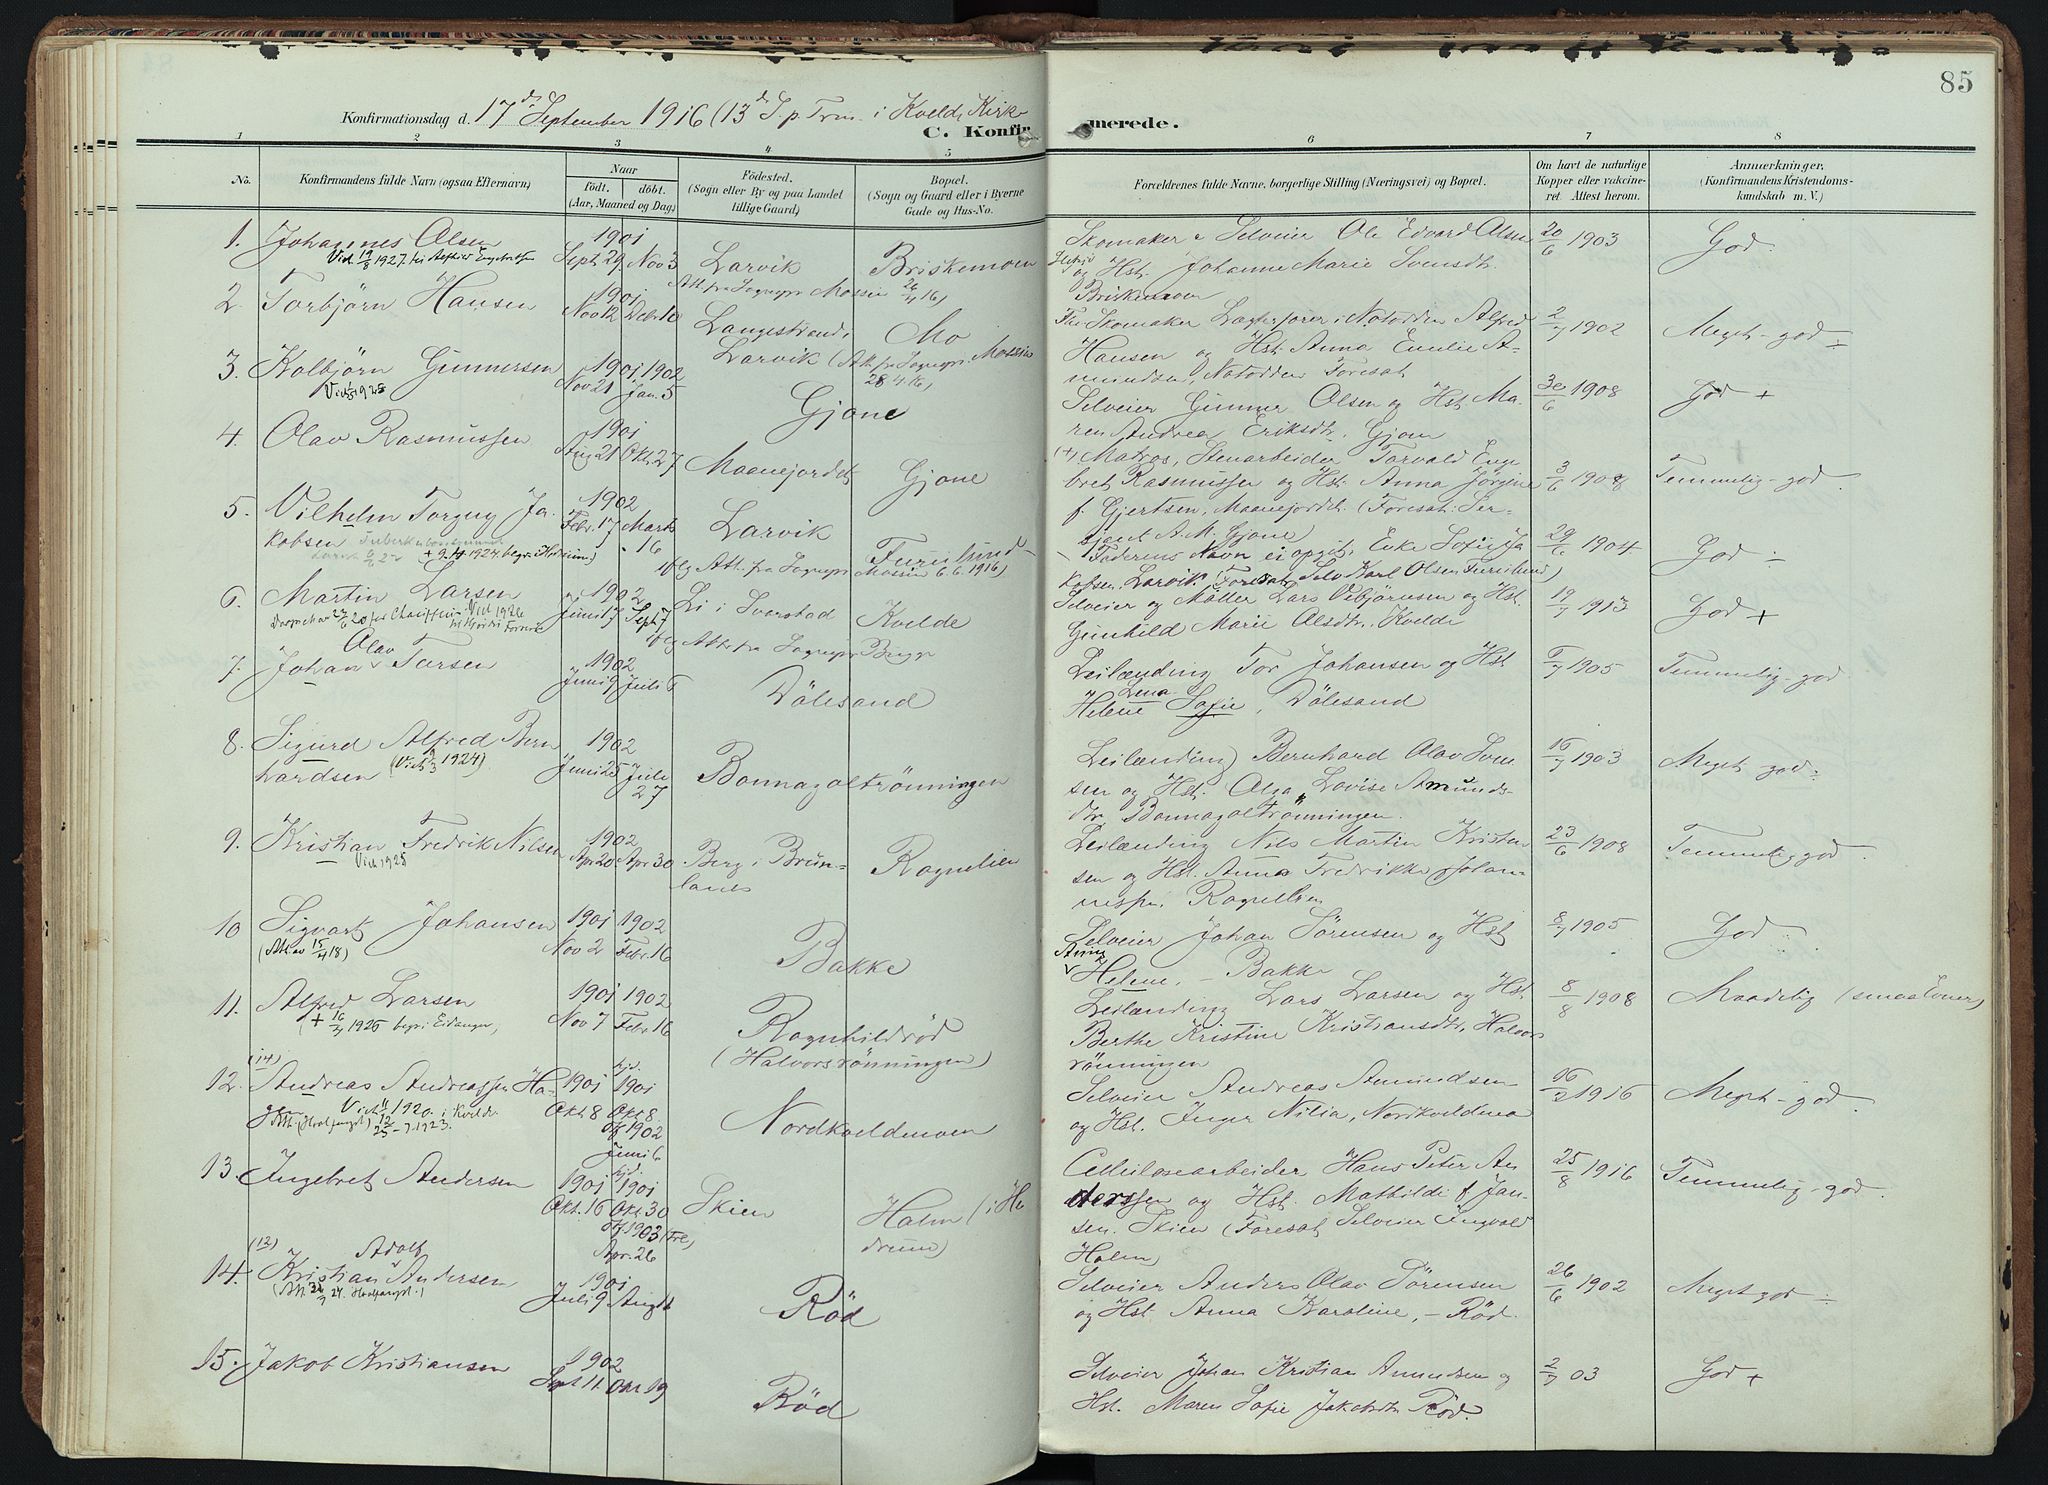 85
Konfirmationsdag d. 17de September 1916 (13d S. p. Trin. i Kvelde Kirke
C. Konfirmerede.
1 2 3 4 5 6 7 8
No.
Konfirmandens fulde Navn (ogsaa Efternavn)
Naar
födt. döbt.
(Aar, Maaned og Dag)
Födested.
(Sogn eller By og paa Landet
tillige Gaard)
Bopæl.
(Sogn og Gaard eller i Byerne
Gade og Hus-No.
Forældrenes fulde Navne, borgerlige Stilling (Næringsvei) og Bopæl.
Om havt de naturlige
Kopper eller vakcine-
ret Attest herom.
Anmerkninger,
(Konfirmandens Kristendoms-
kundskab m. V.)
1. Johannes Olsen
1901
Sept 29 Nov 3
Larvik
Briskemoen
Skomaker & Selveier Ole Edvard Olsen
og Hst. Johanne Marie Svensdtr.
Briskemoen
20/6 1903
God
2. Torbjörn Hansen
1901
Nov 12 Debr 10
Langestrand,
Larvik
Mo
Skomaker Lagerfører i Notodden Alfred
Hansen og Hst. Anna Emilie A-
mundsen, Notodden Foresat
2/7 1902
Meget-god ÷
3. Kolbjörn Gunnersen
1901 1902
Nov 21 Jan. 5
Gjone
Selveier Gunner Olsen og Hst. Ma-
ren Andrea Eriksdtr. Gjone
30/6 1908
God +
4. Olav Rasmussen
1901
Aug 21 Okt. 27
Maanejordet
Gjone
(+) Matros, Stenarbeider Torvald Enge
bret Rasmussen og Hst. Anna Jörgine
f. Gjertsen, Maanejordet. (Foresat: Ser-
sjant A. M. Gjone)
3/6 1908
Temmelig-god.
5. Vilhelm Torguy Ja-
kobsen
1902
Febr. 17 Marts
16
Larvik
Furulund
Faderens Navn ei opgit, Enke Sofie Ja
kobsen, Larvik (Foresat, Selv. Karl Olsen Furulund)
29/6 1904
God ÷
6. Martin Larsen
1902
Juni 17 Sept 7
Li i Sverstad
Kvelde
Selveier og Möller Lars Vebjörnsen og Hst.
Gunhild Marie Olsdtr. Kvelde
19/7 1913
God +
7. Johan Olav Torsen
1902
Juni 9 Juli 6
Dölesand
Leilænding Tor Johansen og Hst
Helene Lena Sofie, Dölesand
1905
Temmelig-god
8. Sigurd Alfred Bern
hardsen (Vid 3 1924).
1902
Juni 25 Juli
27
Bonnagoltrönningen
Leilænding Bernhard Olav Sven
sen og Hst. Olga Lovise Amunds-
dtr Bonnagoltrönningen.
16/7 1903
Meget god ÷
9. Kristian Fredrik Nilsen
Vid 1925
1902
Apr 20 Apr 30
Berg i Brun-
lanes
Ragnelien
Leilænding Nils Martin Kristen
sen og Hst. Anna Fredrikke Johan-
nesen, Ragnelien
23/6 1908
Temmelig god.
10 Sigvart Johansen
(Att. av 15/4 18)
1901 1902
Nov 2 Febr. 16
Bakke
Selveier Johan Sörensen og Hst
Anna Helene, - Bakke
8/7 1905
God
11. Alfred Larsen
(+ 16/7 1926 begr. i Eidanger,
1901 1902
Nov 7 Febr. 16
Ragnhildröd
(Halvorsrönningen)
Leilænding Lars Larsen og Hst.
Berthe Kristine Kristiansdtr, Halvors
rönningen
8/8 1908
Maadelig (smaa Evner)
(14)
12. Andreas Andreassen Ha-
gen
1901 hjd. 1901
Okt. 8 Okt 8.
1902
Juni 6
Nordkveldemoen
Selveier Andreas Amundsen
og Hst. Inger Nilia, Nordkveldemo
1916
Meget-god.
13. Ingebret Andersen
1901 hjd. 1901
Okt. 16 Okt. 30
1903
Apr. 26
Skien
Holm (i He
drum)
Cellulosearbeider Hans Peter An
derssen og Hst. Mathilde f. Jan-
sen. Skien (Foresat Selveier Ingvald
Holm)
25/8 1916
Temmelig-god.
(12)
14. Kristian Adolf Andersen
1901
Juli 9 Aug
Röd
Selveier Anders Olav Sörensen
og Hst. Anna Karoline, - Röd.
26/6 1902
Meget god ÷
15. Jakob Kristiansen
1902
Sept 11. Okt 19
Röd
Selveier Johan Kristian Amundsen og
Hst. Maren Sofie Jakobsdtr Röd.
2/7 03
God +